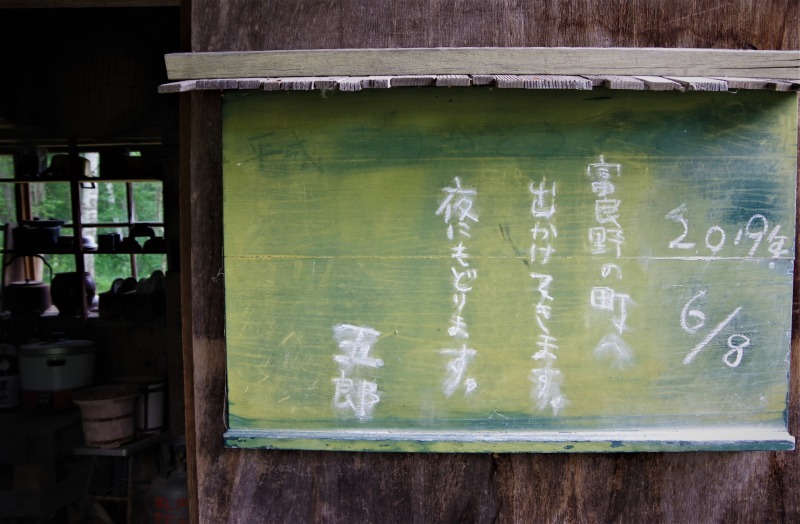 2019年
6/8
富良野の町へ
出かけてきます。
夜にもどります。
五郎